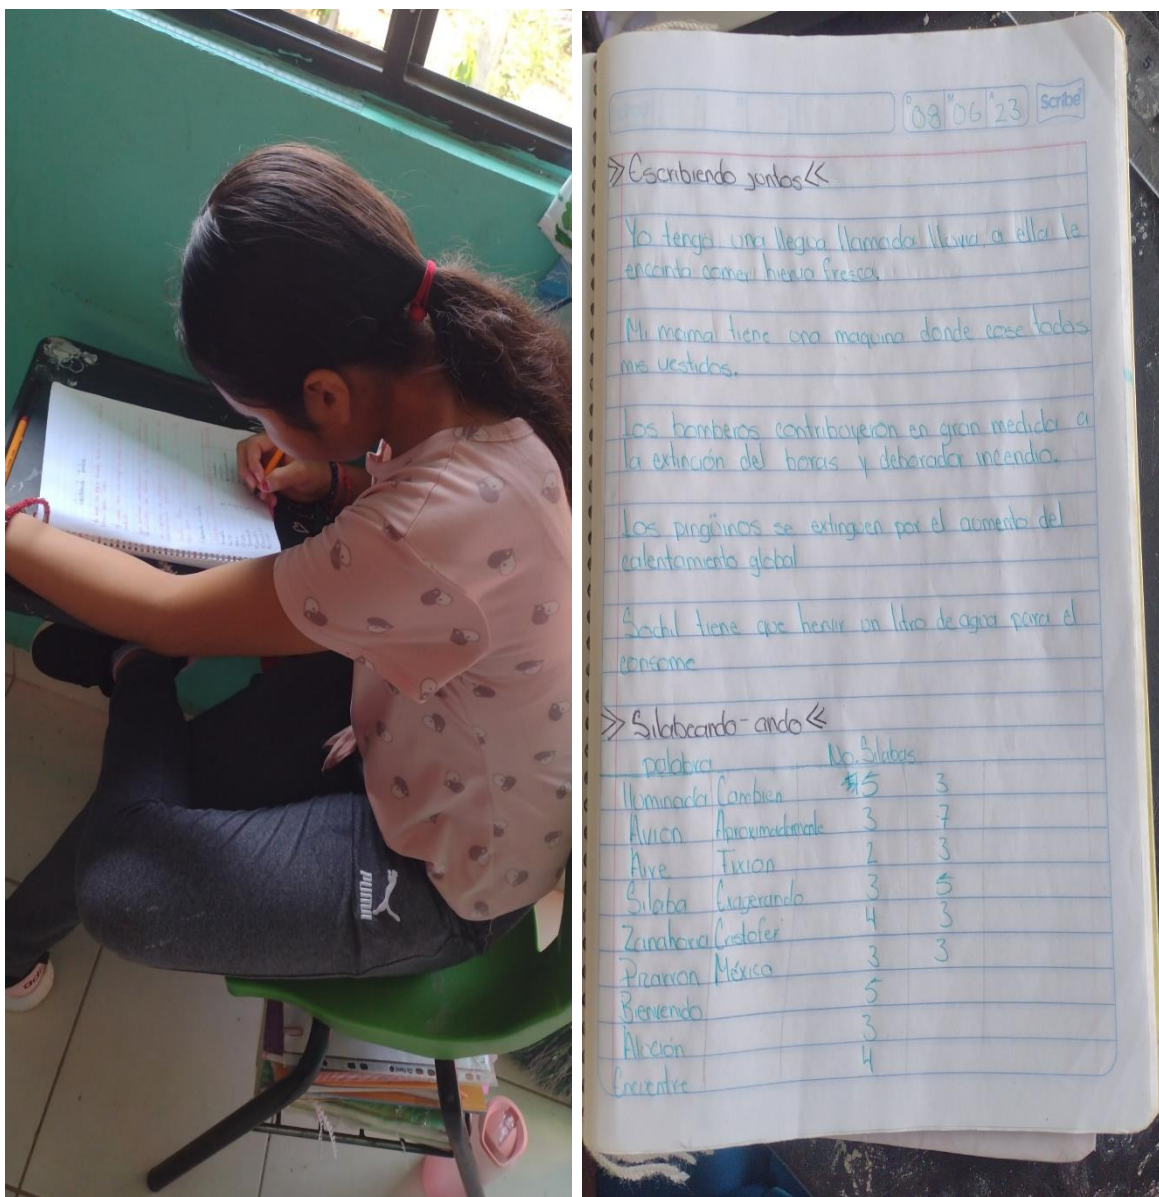 PUMA
D M A
08 06 23
Scribe
» Escribiendo juntos «
Yo tengo una llegua llamada lluvia, a ella le
encanta comer hierva fresca.
Mi mama tiene una maquina donde cose todos
mis vestidos.
Los bomberos contribuyeron en gran medida a
la extinción del boras y deborador incendio.
Los pingüinos se extinguen por el aumento del
calentamiento global
Sochil tiene que hervir un litro de agua para el
consome
» Silabeando-ando «
palabra No. Silabas
Iluminada Cambien 5 3
Avion Aproximadamente 3 7
Ave Fixion 2 3
Silaba Exagerando 3 5
Zanahoria Cristofer 4 3
Pizarron México 3 3
5
3
Encuentre 4